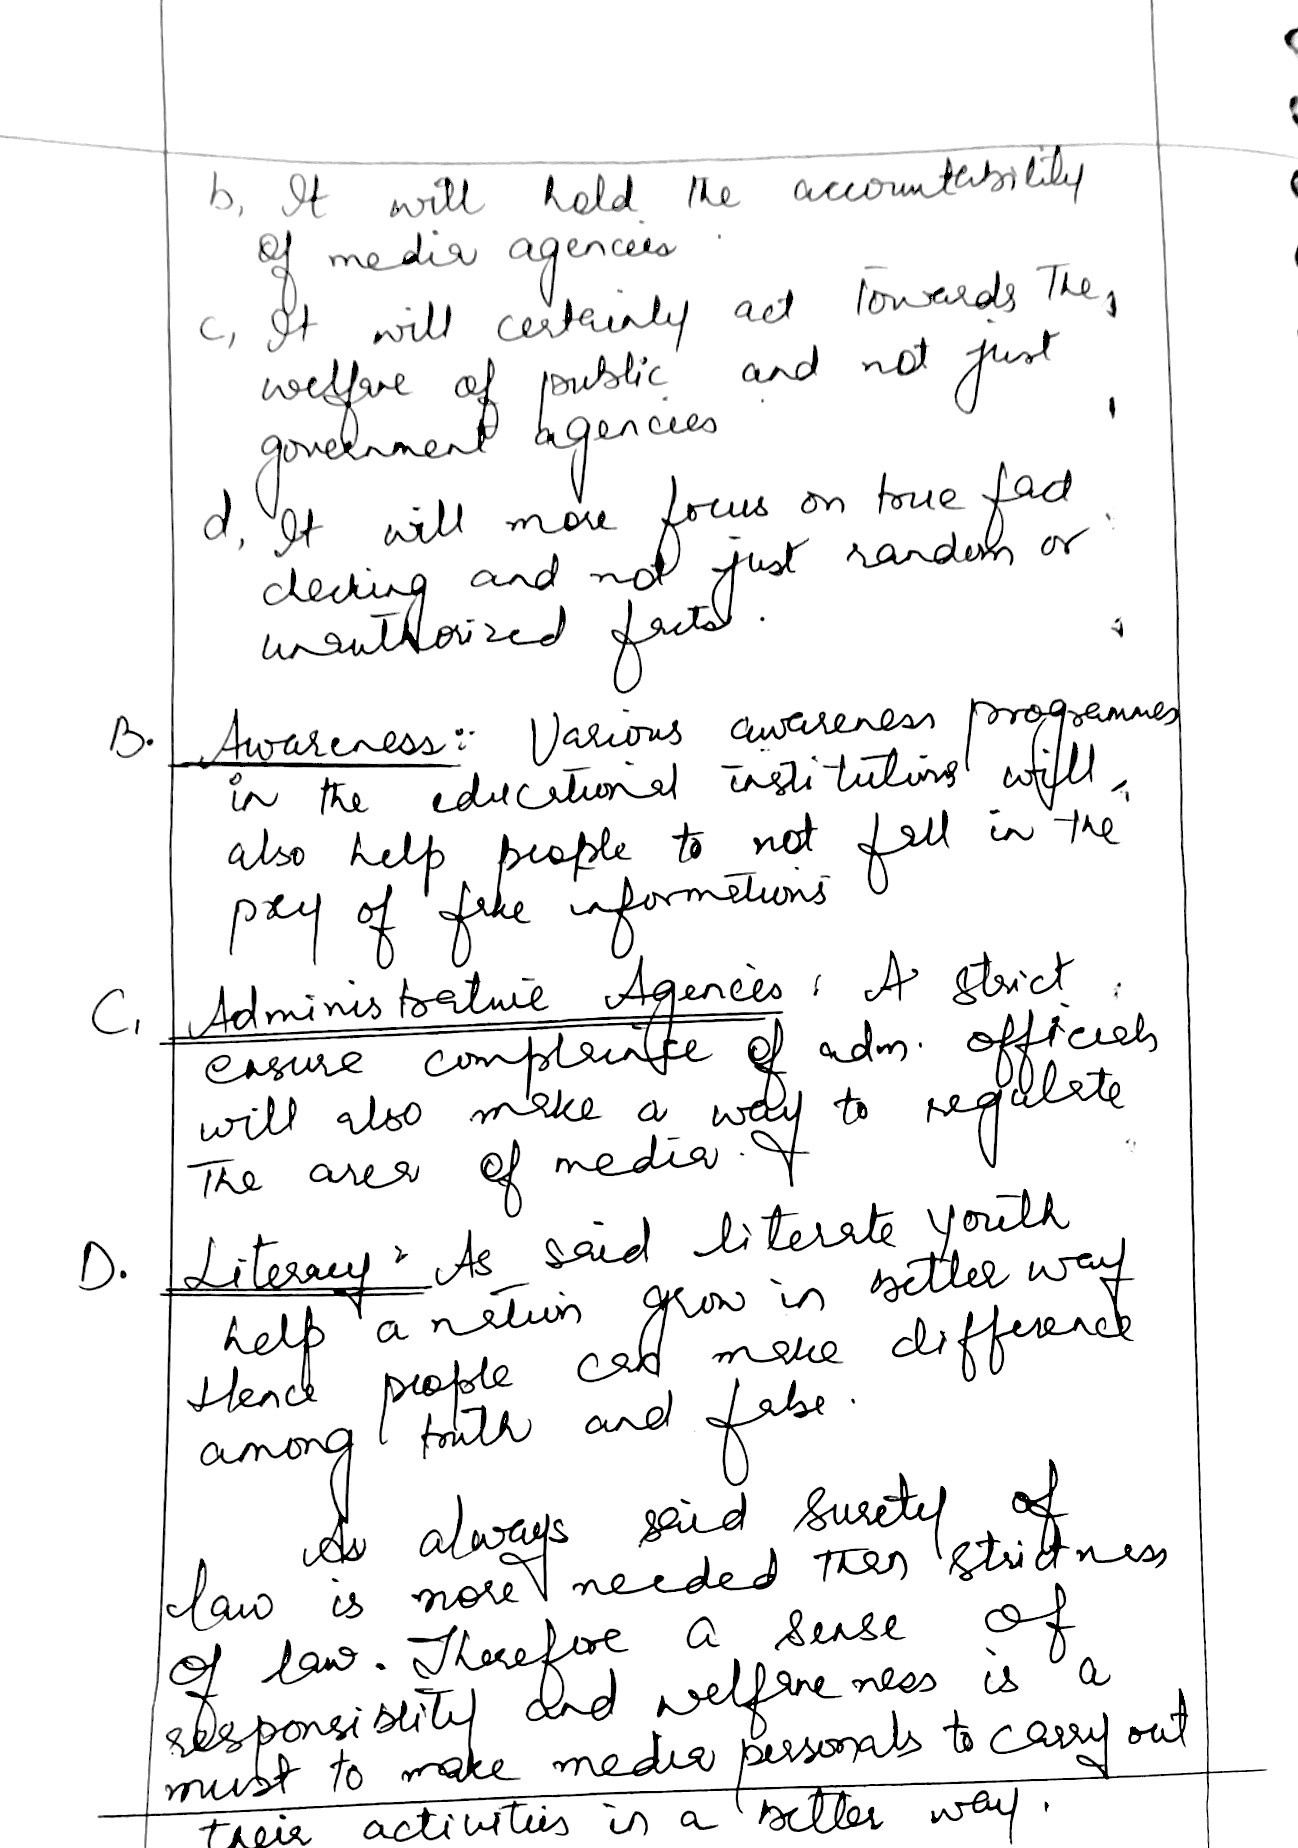 b, It will hold the accountability
of media agencies
c, It will certainly act towards the,
welfare of public and not just
government agencies
d, It will more focus on true fact
checking and not just random or
unauthorized facts.
B. Awareness:- Various awareness programmes
in the educational institutions will
also help people to not fall in the
prey of fake informations
C, Administrative Agencies: A strict
ensure compliance of adm. officials
will also make a way to regulate
the area of media.
D. Literacy: As said literate youth
help a nation grow in better way
Hence people can make difference
among truth and false.
As always said surety of
law is more needed then strictness
of law. Therefore a sense of
responsiblity and welfareness is a
must to make media personals to carry out
their activities in a better way.